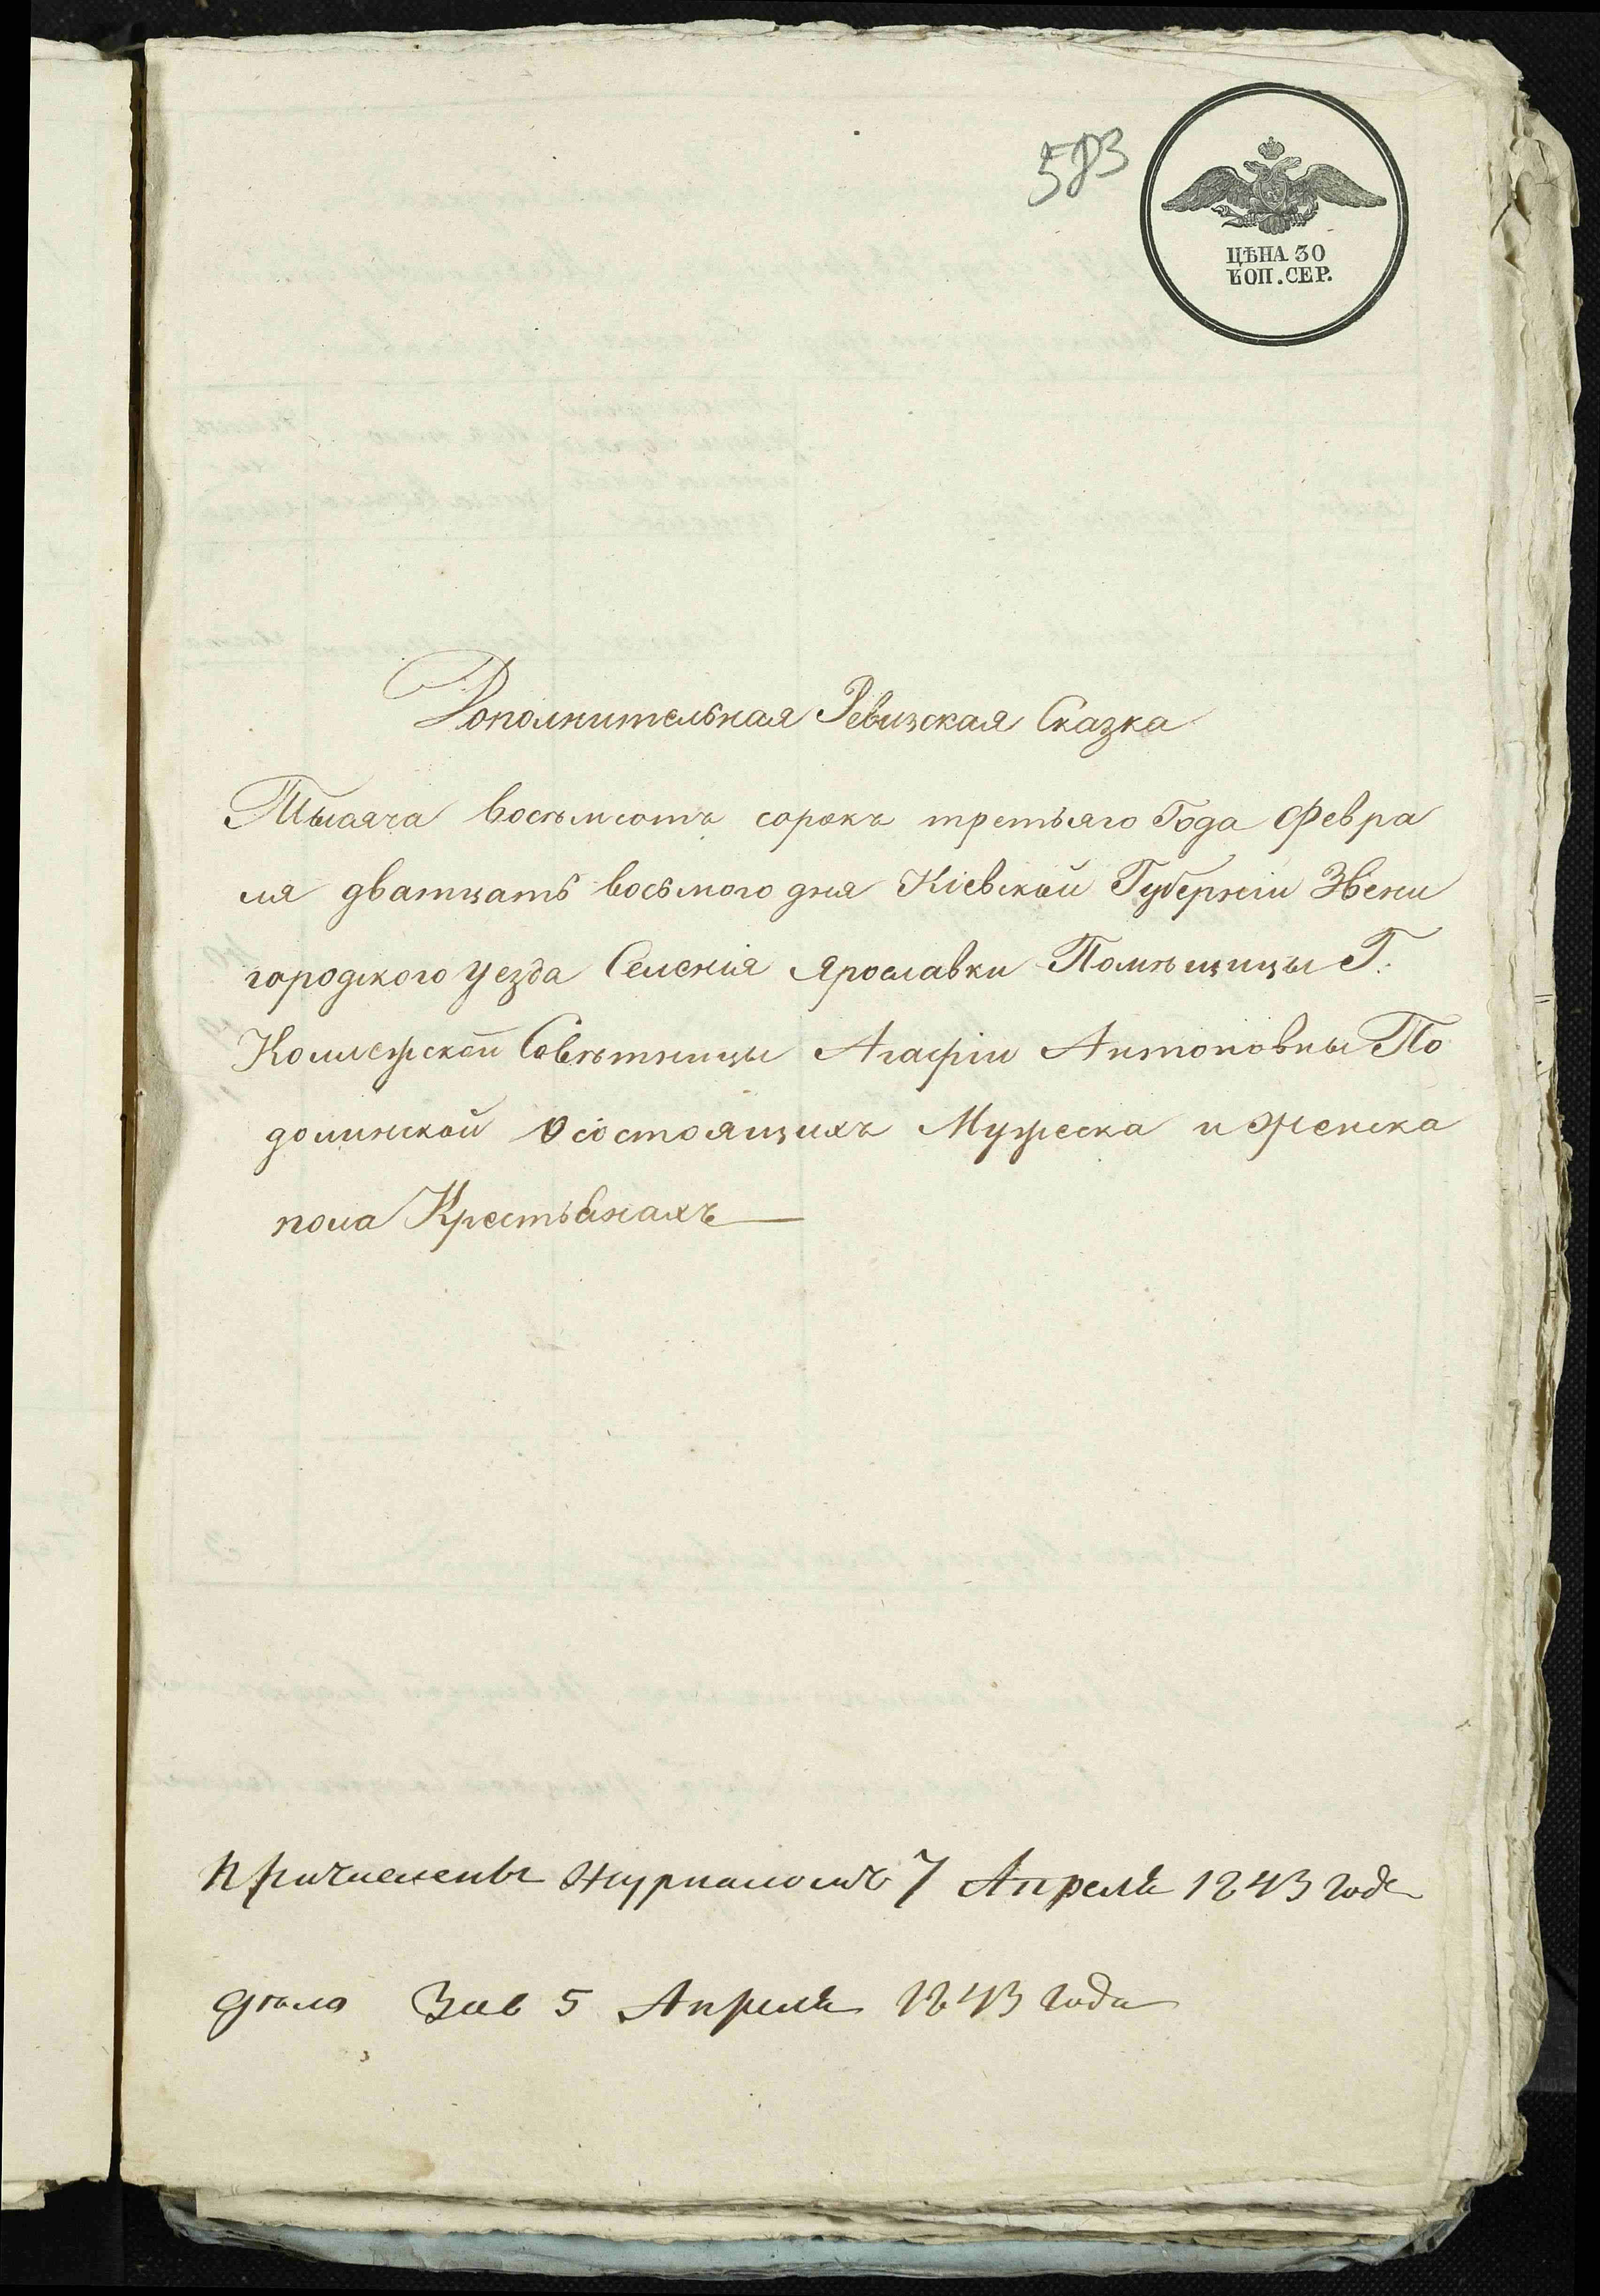 583
ЦѢНА 30
КОП. СЕР.
Дополнительная Ревизская Сказка
Тысяча восемсотъ сорокъ третьяго Года Февра
ля дватцать восьмого дня Кіевской Губерніи Звени
городского уезда Селенія Ярославки Помѣщицы Г.
Колежской Совѣтницы Агафіи Антоновны По
долинской о состоящихъ Мужеска и женска
пола Крестьянахъ
Причислены Журналомъ 7 Апреля 1843 года
дѣло 5 Апреля 1843 года